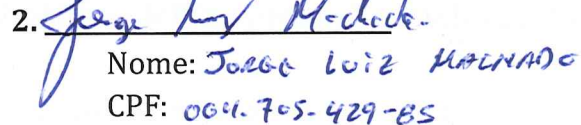 2. Jorge Luiz Machado.
Nome: JORGE LUIZ MACHADO
CPF: 004.705.429-85